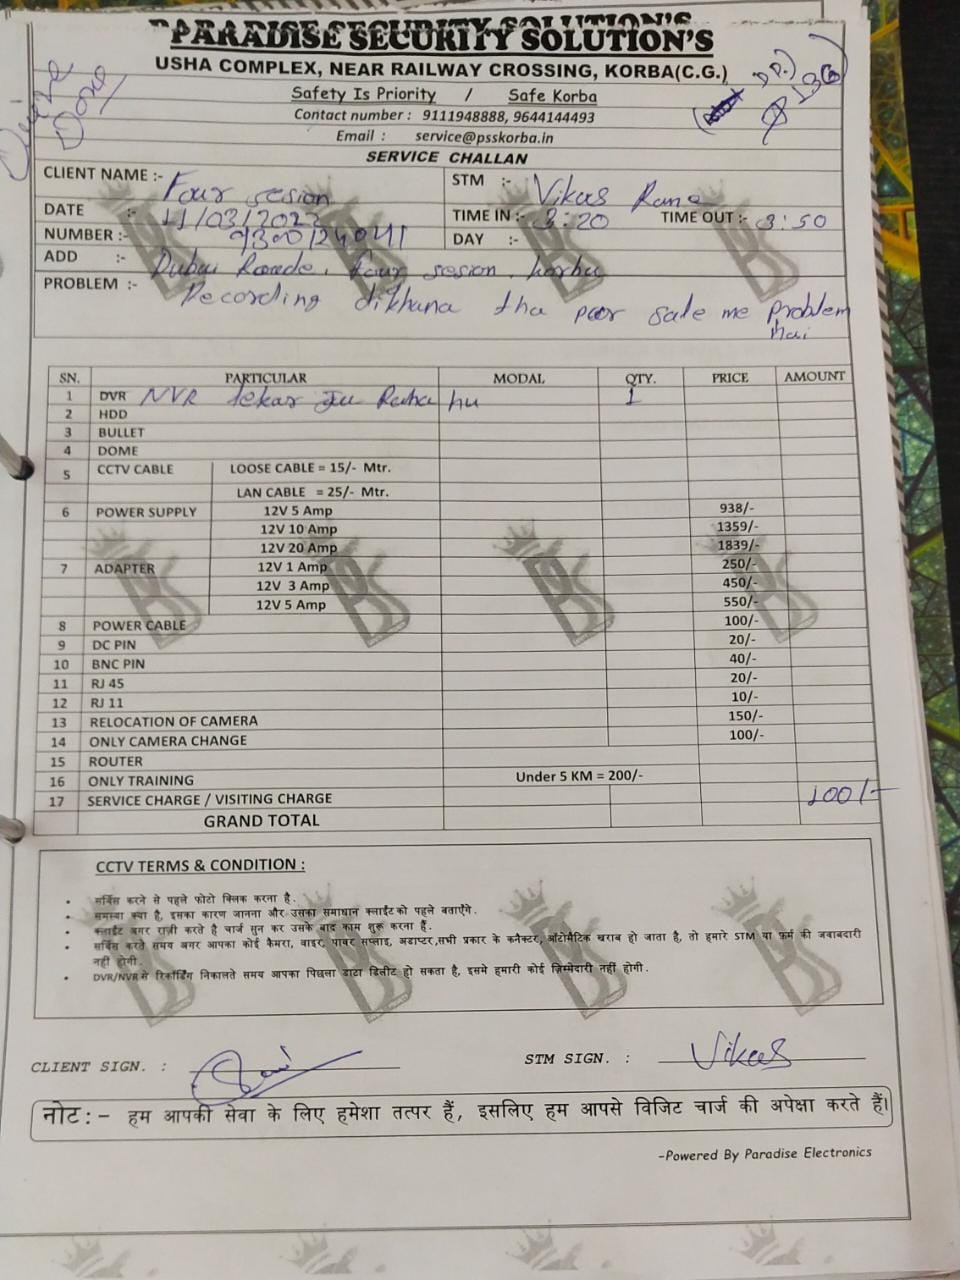 PARADISE SECURITY SOLUTION'S
USHA COMPLEX, NEAR RAILWAY CROSSING, KORBA(C.G.)
Safety Is Priority / Safe Korba
Contact number : 9111948888, 9644144493
Email : service@psskorba.in
Done
SERVICE CHALLAN
CLIENT NAME :- Four sesion
STM :- Vikas Rana
DATE :- 11/03/2023
TIME IN :- 3:20 TIME OUT :- 3:50
NUMBER :-
DAY :-
ADD :- Dubai four sesion, korba
PROBLEM :- Recording dikhana tha paor sale me problem
hai
SN. PARTICULAR MODAL QTY. PRICE AMOUNT
1 DVR NVR lekar Ja Raha hu 1
2 HDD
3 BULLET
4 DOME
5 CCTV CABLE LOOSE CABLE = 15/- Mtr.
LAN CABLE = 25/- Mtr.
6 POWER SUPPLY 12V 5 Amp 938/-
12V 10 Amp 1359/-
12V 20 Amp 1839/-
7 ADAPTER 12V 1 Amp 250/-
12V 3 Amp 450/-
12V 5 Amp 550/-
8 POWER CABLE 100/-
9 DC PIN 20/-
10 BNC PIN 40/-
11 RJ 45 20/-
12 RJ 11 10/-
13 RELOCATION OF CAMERA 150/-
14 ONLY CAMERA CHANGE 100/-
15 ROUTER
16 ONLY TRAINING Under 5 KM = 200/-
17 SERVICE CHARGE / VISITING CHARGE 200/-
GRAND TOTAL
CCTV TERMS & CONDITION :
• सर्विस करने से पहले फोटो क्लिक करना है.
• समस्या क्या है, इसका कारण जानना और उसका समाधान क्लाईंट को पहले बताएँगे.
• क्लाईंट अगर राज़ी करते है चार्ज सुन कर उसके बाद काम शुरू करना हैं.
• सर्विस करते समय अगर आपका कोई कैमरा, वाइर, पावर सप्लाइ, अडाप्टर,सभी प्रकार के कनैक्टर, ऑटोमैटिक खराब हो जाता है, तो हमारे STM या फ़र्म की जवाबदारी
नहीं होगी.
• DVR/NVR से रिकॉर्डिंग निकालते समय आपका पिछला डाटा डिलीट हो सकता है, इसमे हमारी कोई ज़िम्मेदारी नहीं होगी.
CLIENT SIGN. :
STM SIGN. : Vikas
नोट:- हम आपकी सेवा के लिए हमेशा तत्पर हैं, इसलिए हम आपसे विजिट चार्ज की अपेक्षा करते हैं।
-Powered By Paradise Electronics